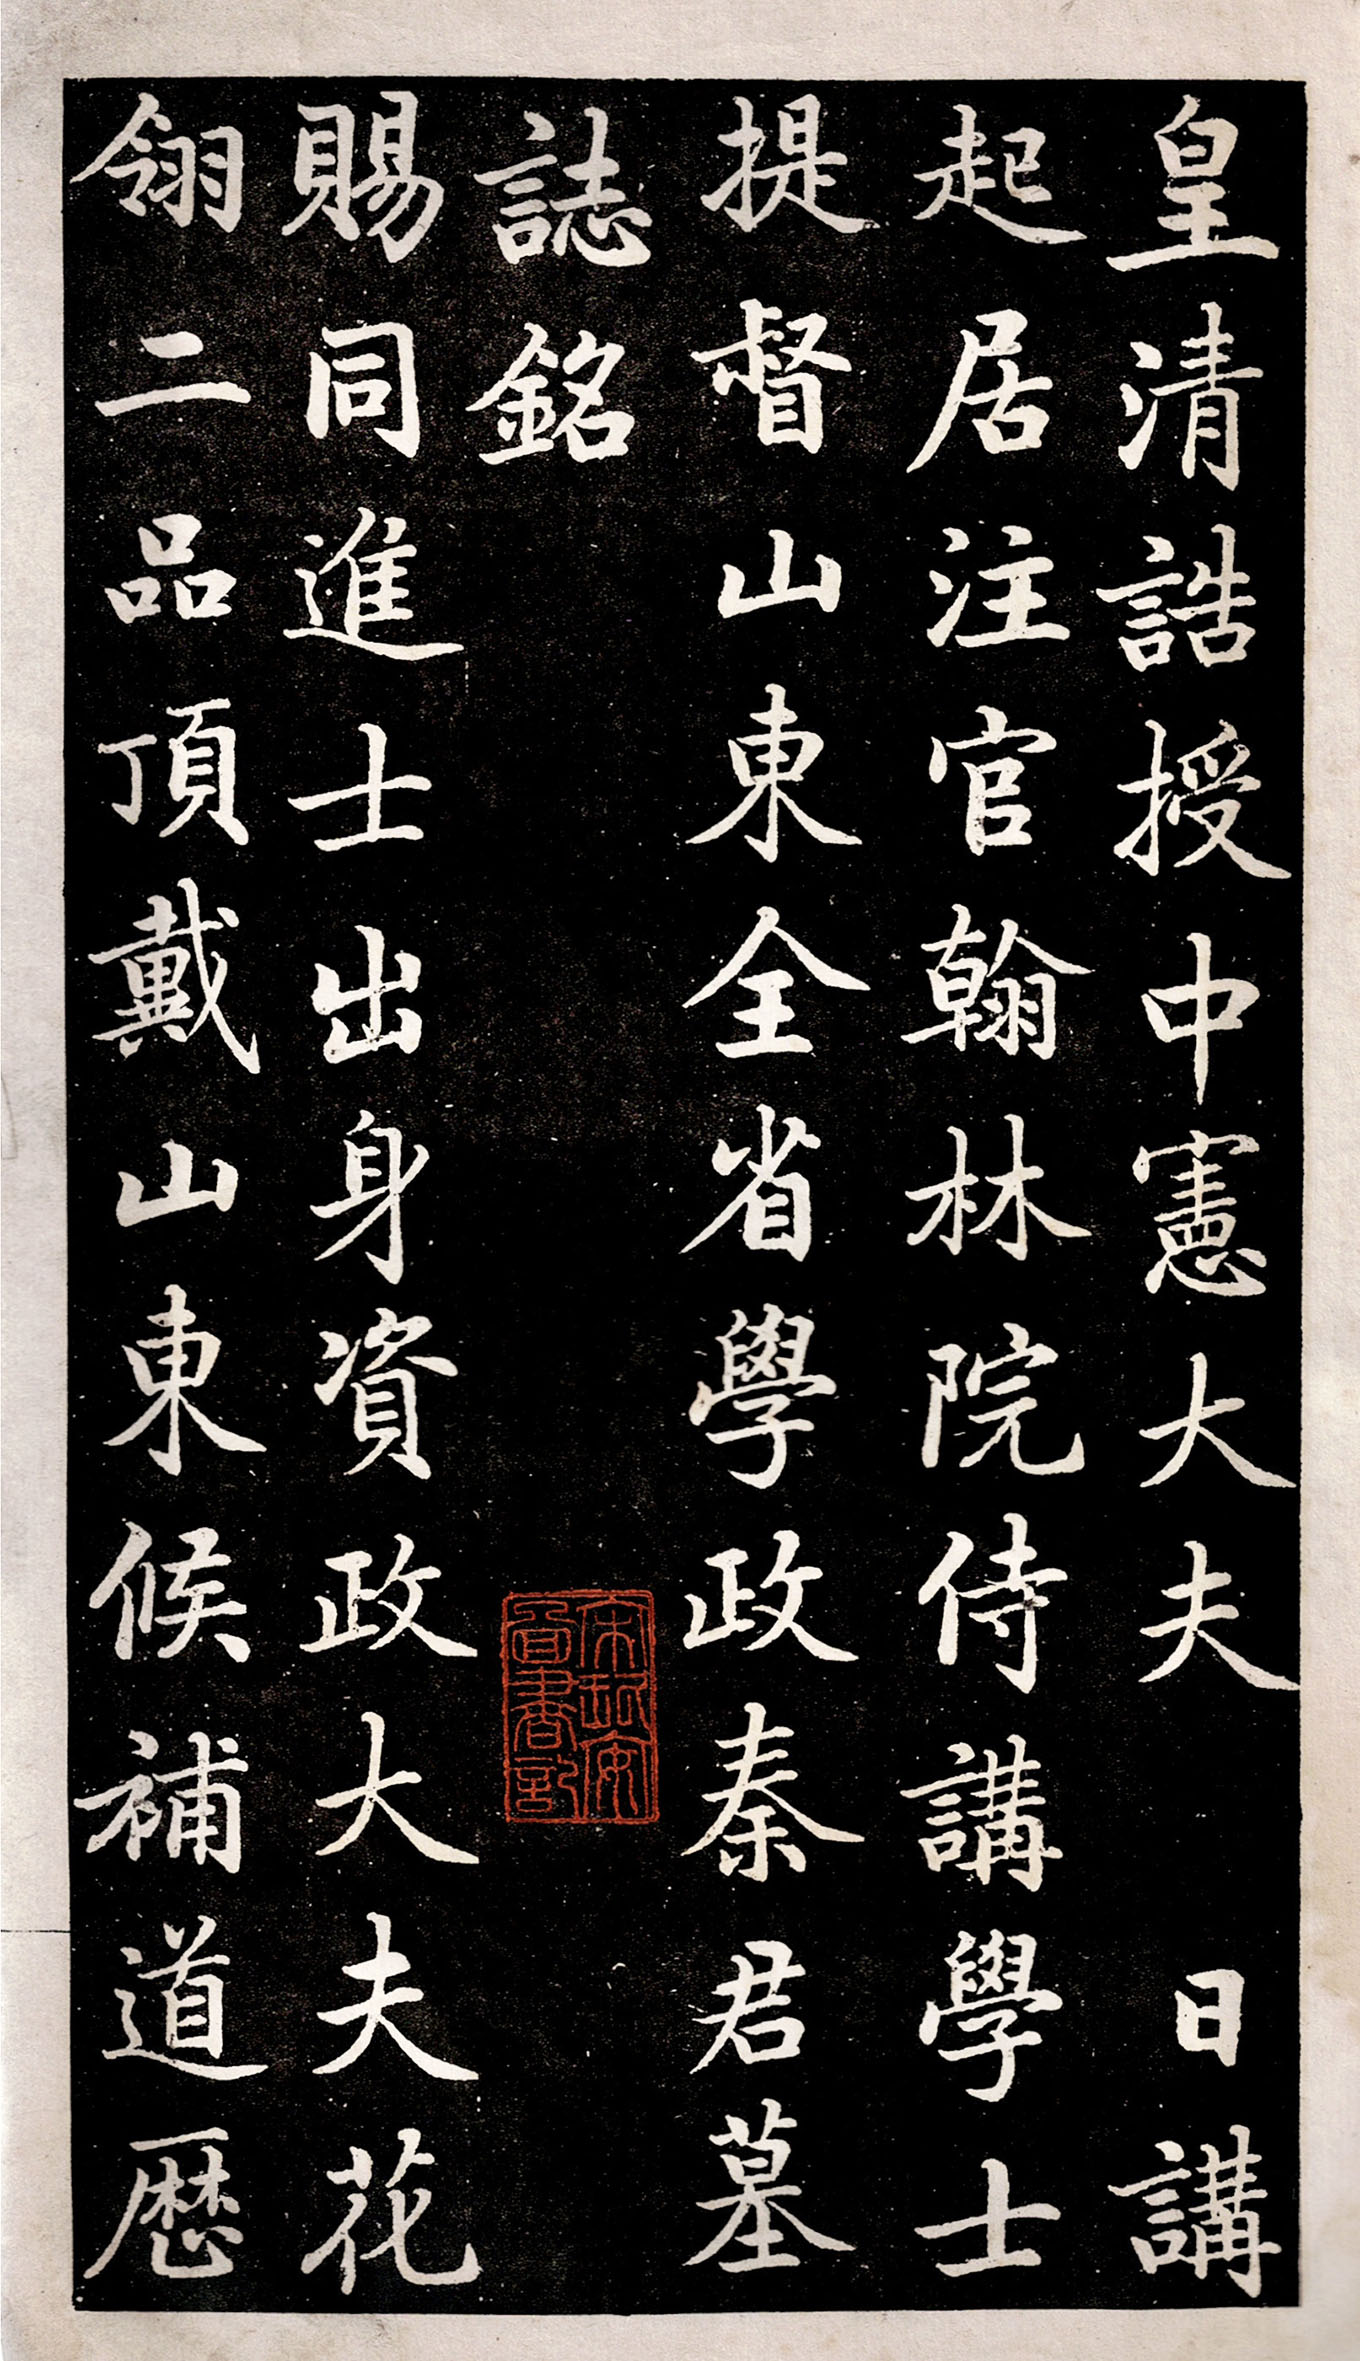 皇清誥授中憲大夫　日講
起居注官翰林院侍講學士
提督山東全省學政秦君墓
誌銘
賜同進士出身資政大夫花
翎二品頂戴山東候補道歷